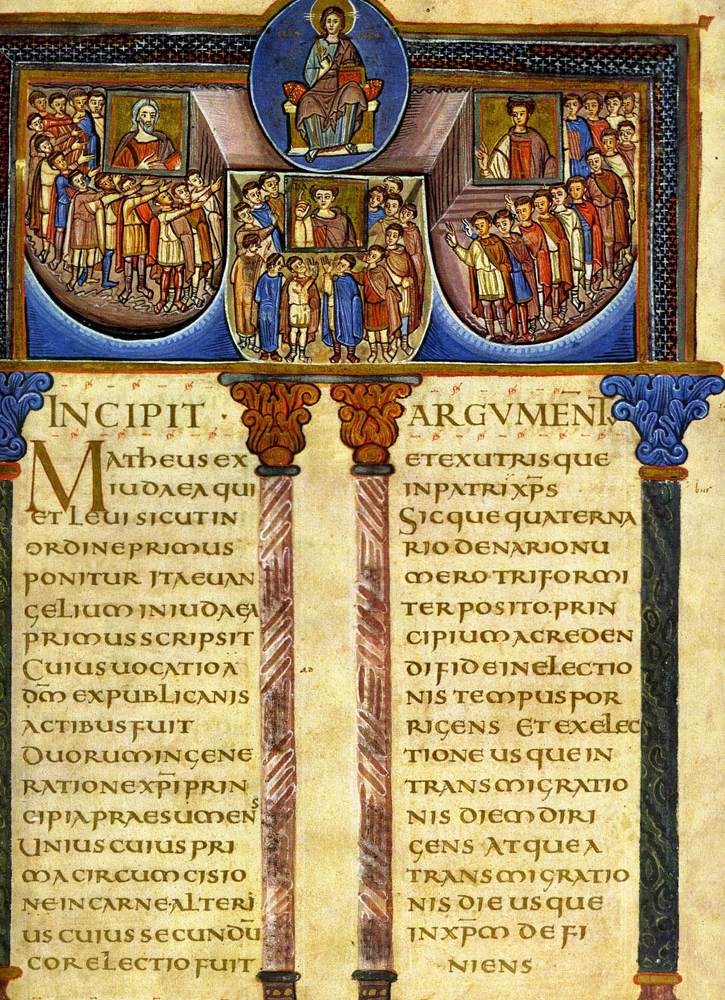 INCIPIT ·
MATHEUS EX
IUDAEA QUI
ET LEUI SICUT IN
ORDINE PRIMUS
PONITUR ITA EUAN
GELIUM IN IUDAEA
PRIMUS SCRIPSIT
CUIUS UOCATIO A
DM̄ EX PUBLICANIS
ACTIBUS FUIT
DUORUM IN GENE
RATIONE XP̄I PRIN
CIPIA PRAESUMENS
UNIUS CUIUS PRI
MA CIRCUMCISIO
NE IN CARNE ALTERI
US CUIUS SECUNDŪ
COR ELECTIO FUIT
ARGVMEÑT
ET EX UTRISQUE
IN PATRI XP̄S
SICQUE QUATERNA
RIO DENARIO NU
MERO TRIFORMI
TER POSITO. PRIN
CIPIUM A CREDEN
DI FIDE IN ELECTIO
NIS TEMPUS POR
RIGENS ET EX ELEC
TIONE USQUE IN
TRANSMIGRATIO
NIS DIEM DIRI
GENS ATQUE A
TRANSMIGRATIO
NIS DIE USQUE
IN XP̄M DEFI
NIENS